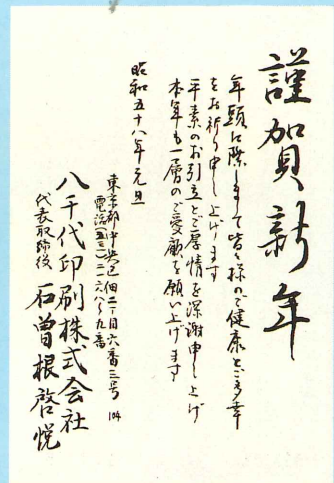 謹賀新年
年頭に際しまして皆々様のご健康とご多幸
をお祈り申し上げます
平素のお引立とご厚情を深謝申し上げ
本年も一層のご愛顧を願い上げます
昭和五十八年元旦
東京都中央区佃二丁目六番三号 104
電話(五三一)二一六八~九番
八千代印刷株式会社
代表取締役 石曽根啓悦